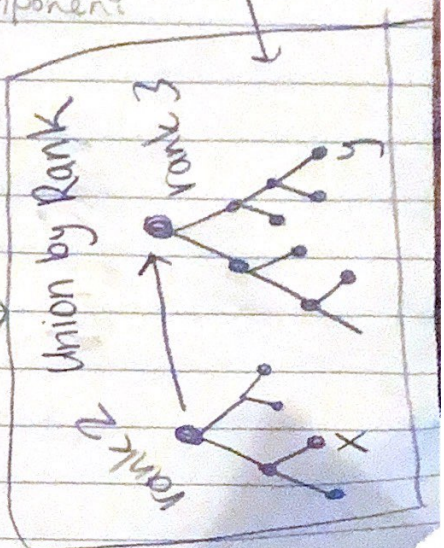 mponent
Union by Rank
rank 2
rank 3
x
y